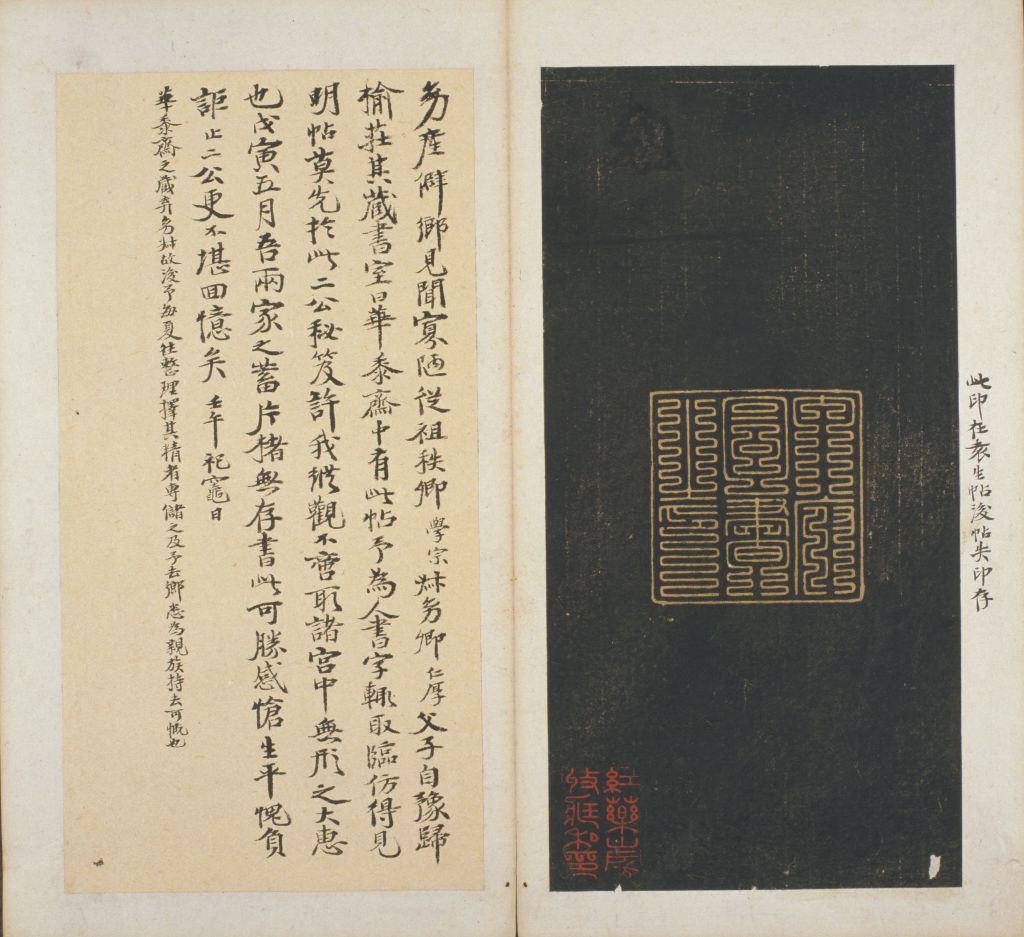 此印在袁生帖後帖失印存
紅藥山房
收藏私印
多產僻鄉見聞寡陋從祖秩卿學宗叔多卿仁厚父子自豫歸
榆莊其藏書室曰華黍齋中有此帖予為人書字輒取臨仿得見
明帖莫先於此二公秘笈許我縱觀不啻取諸宮中無形之大惠
也戊寅五月吾兩家之蓄片楮無存書此可勝感愴生平愧負
詎止二公更不堪回憶矣壬午祀竈日
華黍齋之藏弆多叔故後予每夏往整理擇其精者專儲之及予去鄉悉為親族持去可慨也